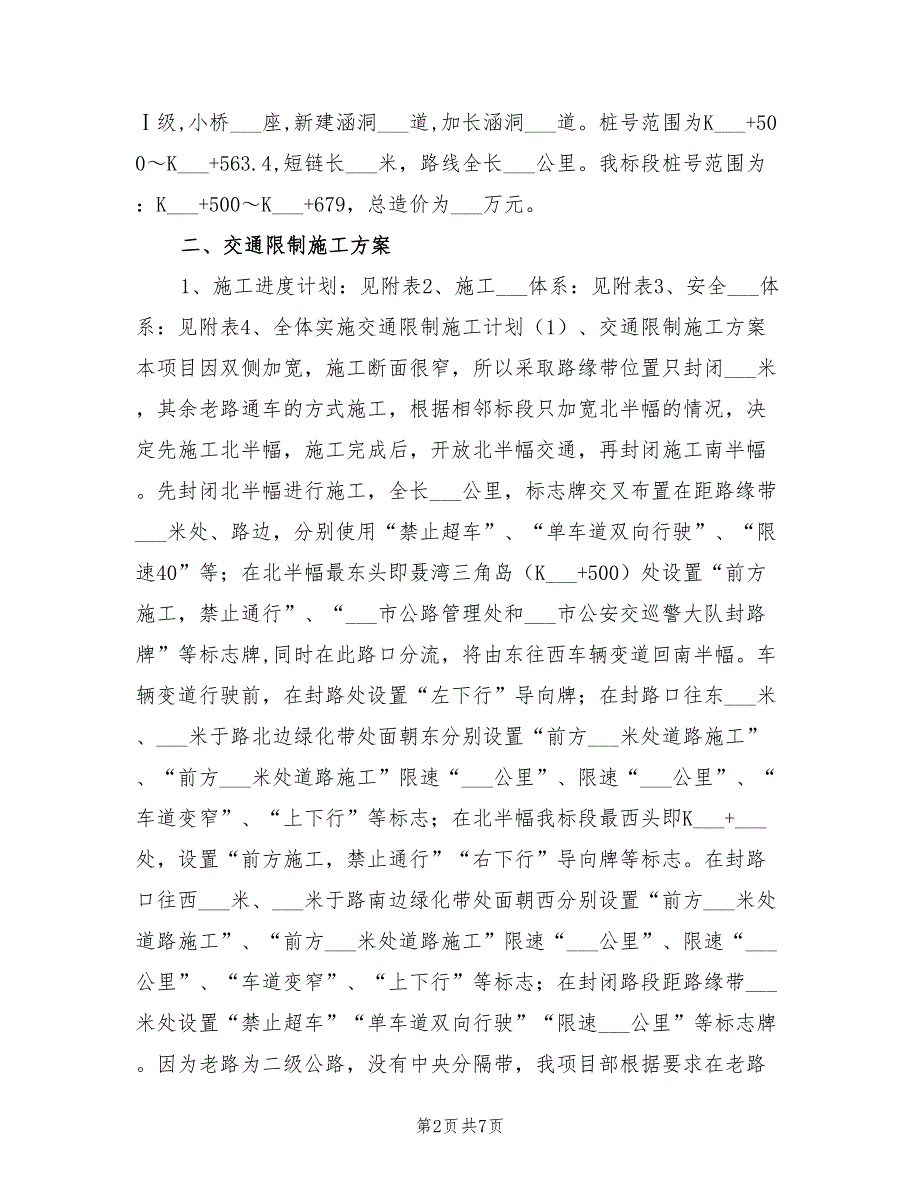 Ⅰ级,小桥___座,新建涵洞___道,加长涵洞___道。桩号范围为K___+50
0～K___+563.4,短链长___米，路线全长___公里。我标段桩号范围为
：K___+500～K___+679，总造价为___万元。
二、交通限制施工方案
1、施工进度计划：见附表2、施工___体系：见附表3、安全___体
系：见附表4、全体实施交通限制施工计划（1）、交通限制施工方案
本项目因双侧加宽，施工断面很窄，所以采取路缘带位置只封闭___米
，其余老路通车的方式施工，根据相邻标段只加宽北半幅的情况，决
定先施工北半幅，施工完成后，开放北半幅交通，再封闭施工南半幅
。先封闭北半幅进行施工，全长___公里，标志牌交叉布置在距路缘带
___米处、路边，分别使用“禁止超车”、“单车道双向行驶”、“限
速40”等；在北半幅最东头即聂湾三角岛（K___+500）处设置“前方
施工，禁止通行”、“___市公路管理处和___市公安交巡警大队封路
牌”等标志牌,同时在此路口分流，将由东往西车辆变道回南半幅。车
辆变道行驶前，在封路处设置“左下行”导向牌；在封路口往东___米
、___米于路北边绿化带处面朝东分别设置“前方___米处道路施工”
、“前方___米处道路施工”限速“___公里”、限速“___公里”、“
车道变窄”、“上下行”等标志；在北半幅我标段最西头即K___+___
处，设置“前方施工，禁止通行”“右下行”导向牌等标志。在封路
口往西___米、___米于路南边绿化带处面朝西分别设置“前方___米处
道路施工”、“前方___米处道路施工”限速“___公里”、限速“___
公里”、“车道变窄”、“上下行”等标志；在封闭路段距路缘带___
米处设置“禁止超车”“单车道双向行驶”“限速___公里”等标志牌
。因为老路为二级公路，没有中央分隔带，我项目部根据要求在老路
第2页共7页